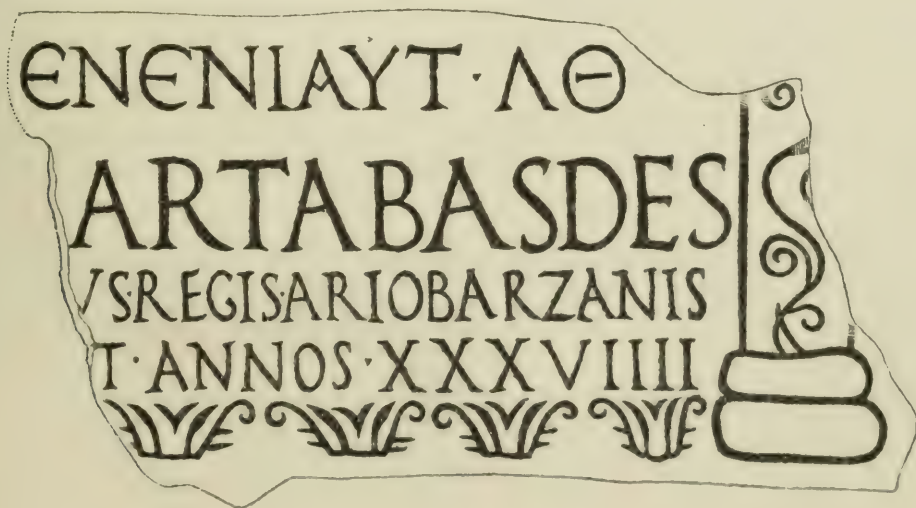 ЄNЄNIAYT · ΛΘ
ARTABASDES
VS·REGIS·ARIOBARZANIS
T · ANNOS · XXXVIIII